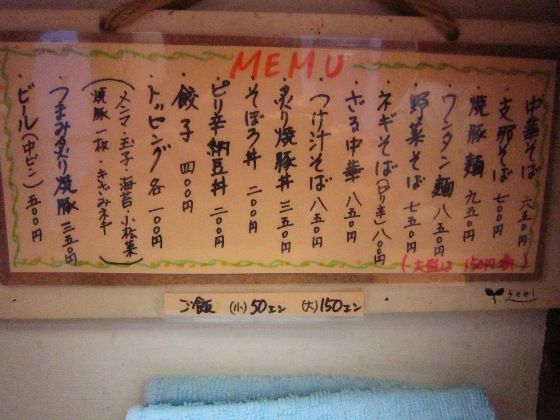 MEMU
中華そば 六五〇円
・支那そば 七〇〇円
・焼豚麺 九五〇円
・ワンタン麺 八五〇円
・野菜そば 七五〇円
・ネギそば(ピリ辛) 八〇〇円
・ざる中華 八五〇円
・つけ汁そば 八五〇円
・炙り焼豚丼 三五〇円
・そぼろ丼 二〇〇円
・ピリ辛納豆丼 二〇〇円
・餃子 四〇〇円
・トッピング各 一〇〇円
(メンマ・玉子・海苔・小松菜
焼豚一枚・きざみネギ)
・つまみ炙り焼豚 三五〇円
・ビール(中ビン) 五〇〇円
(大盛は 150円増)
feel
ご飯 (小)50エン (大)150エン